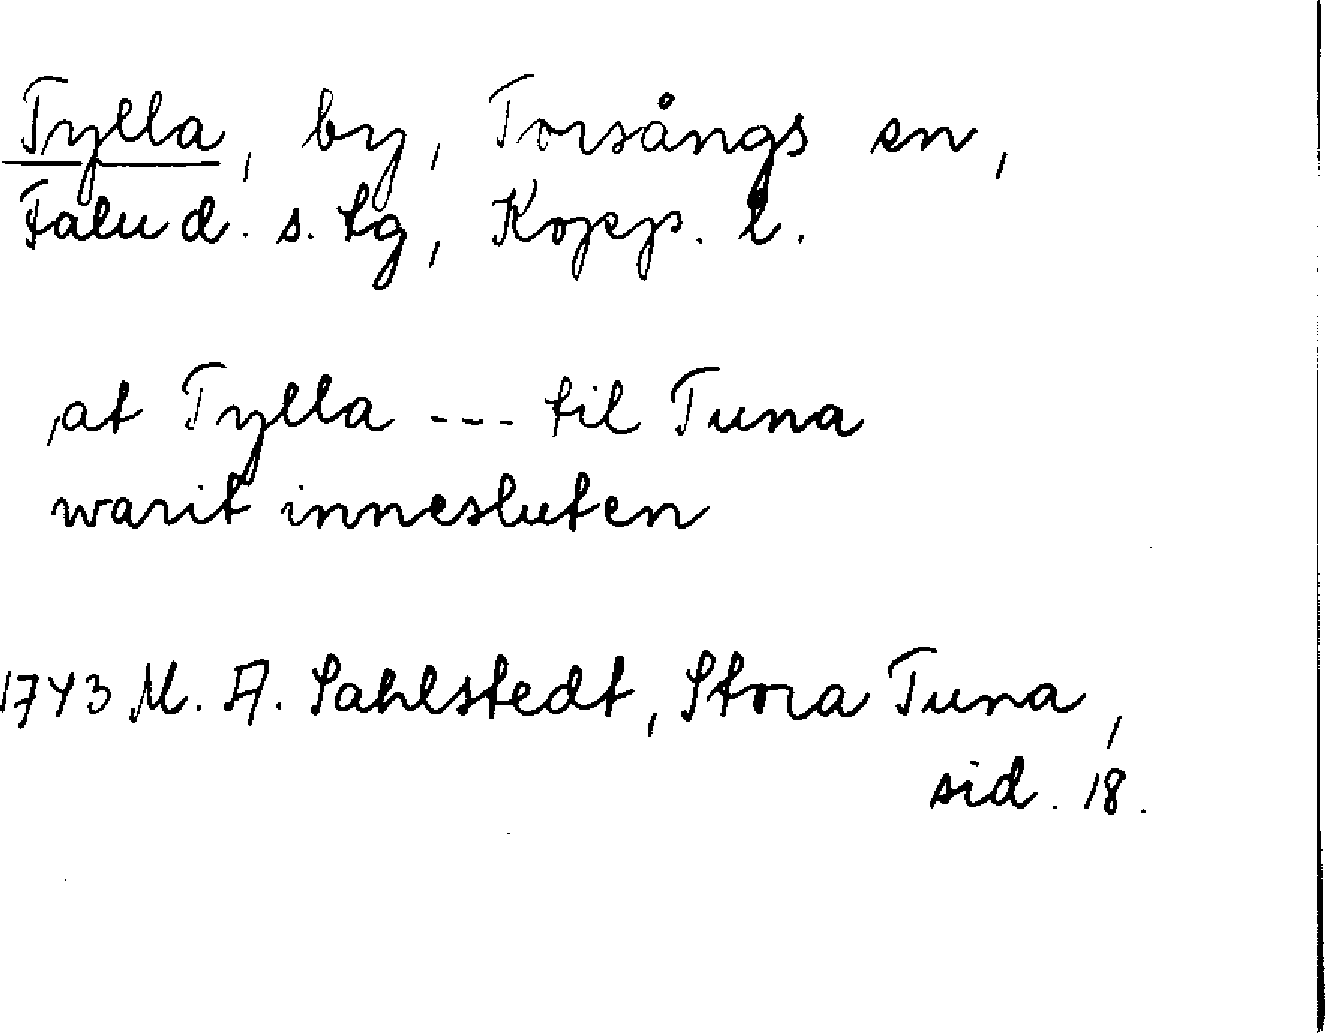 Tylla, by, Torsångs sn,
Falu d. s. tg, Kopp. l.
,at Tylla --- til Tuna
warit innesluten
1743 M. A. Sahlstedt, Stora Tuna,
sid. 18.